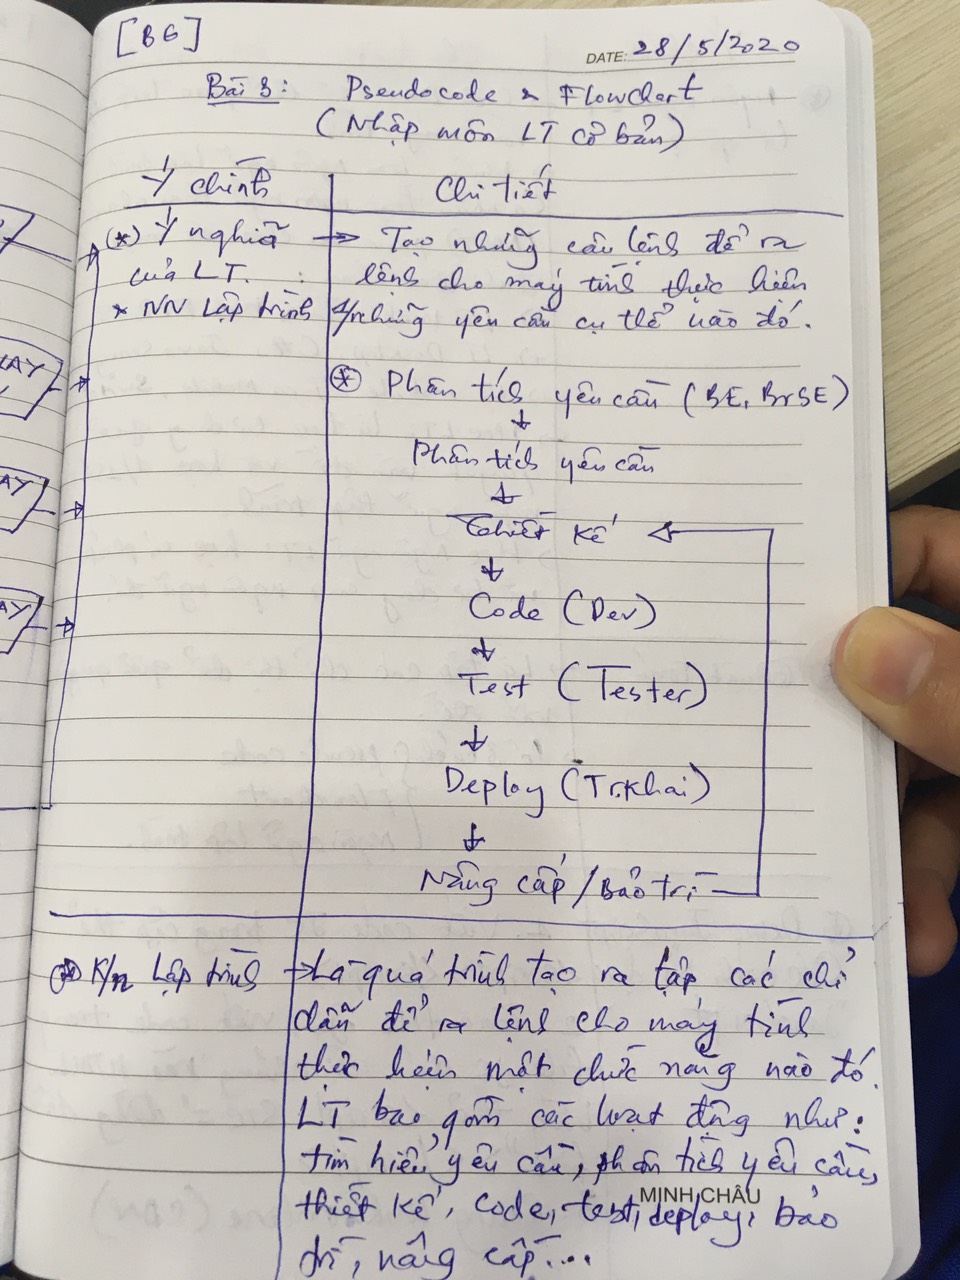 [BG]
DATE: 28/5/2020
Bài 3: Pseudocode & Flowchart
(Nhập môn LT cơ bản)
Ý chính
Chi tiết
(*) Ý nghĩa
của LT.
* NN Lập trình
→ Tạo những câu lệnh để ra
lệnh cho máy tính thực hiện
những yêu cầu cụ thể nào đó.
(*) Phân tích yêu cầu (BE, BrSE)
↓
Phân tích yêu cầu
↓
Thiết kế
↓
Code (Dev)
↓
Test (Tester)
↓
Deploy (Tr.Khai)
↓
Nâng cấp/Bảo trì
(*) K/n Lập trình
→ Là quá trình tạo ra tập các chỉ
dẫn để ra lệnh cho máy tính
thực hiện một chức năng nào đó.
LT bao gồm các hoạt động như:
tìm hiểu yêu cầu, phân tích yêu cầu,
thiết kế, code, test, deploy, bảo
trì, nâng cấp...
MINH CHÂU
AY
AY
AY